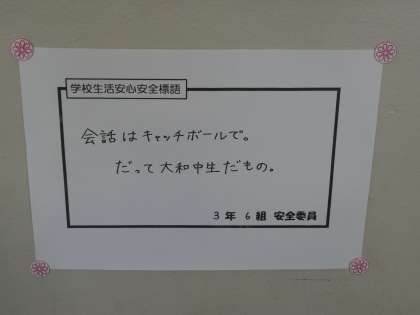 学校生活安心安全標語
会話はキャッチボールで。
だって大和中生だもの。
3年6組 安全委員